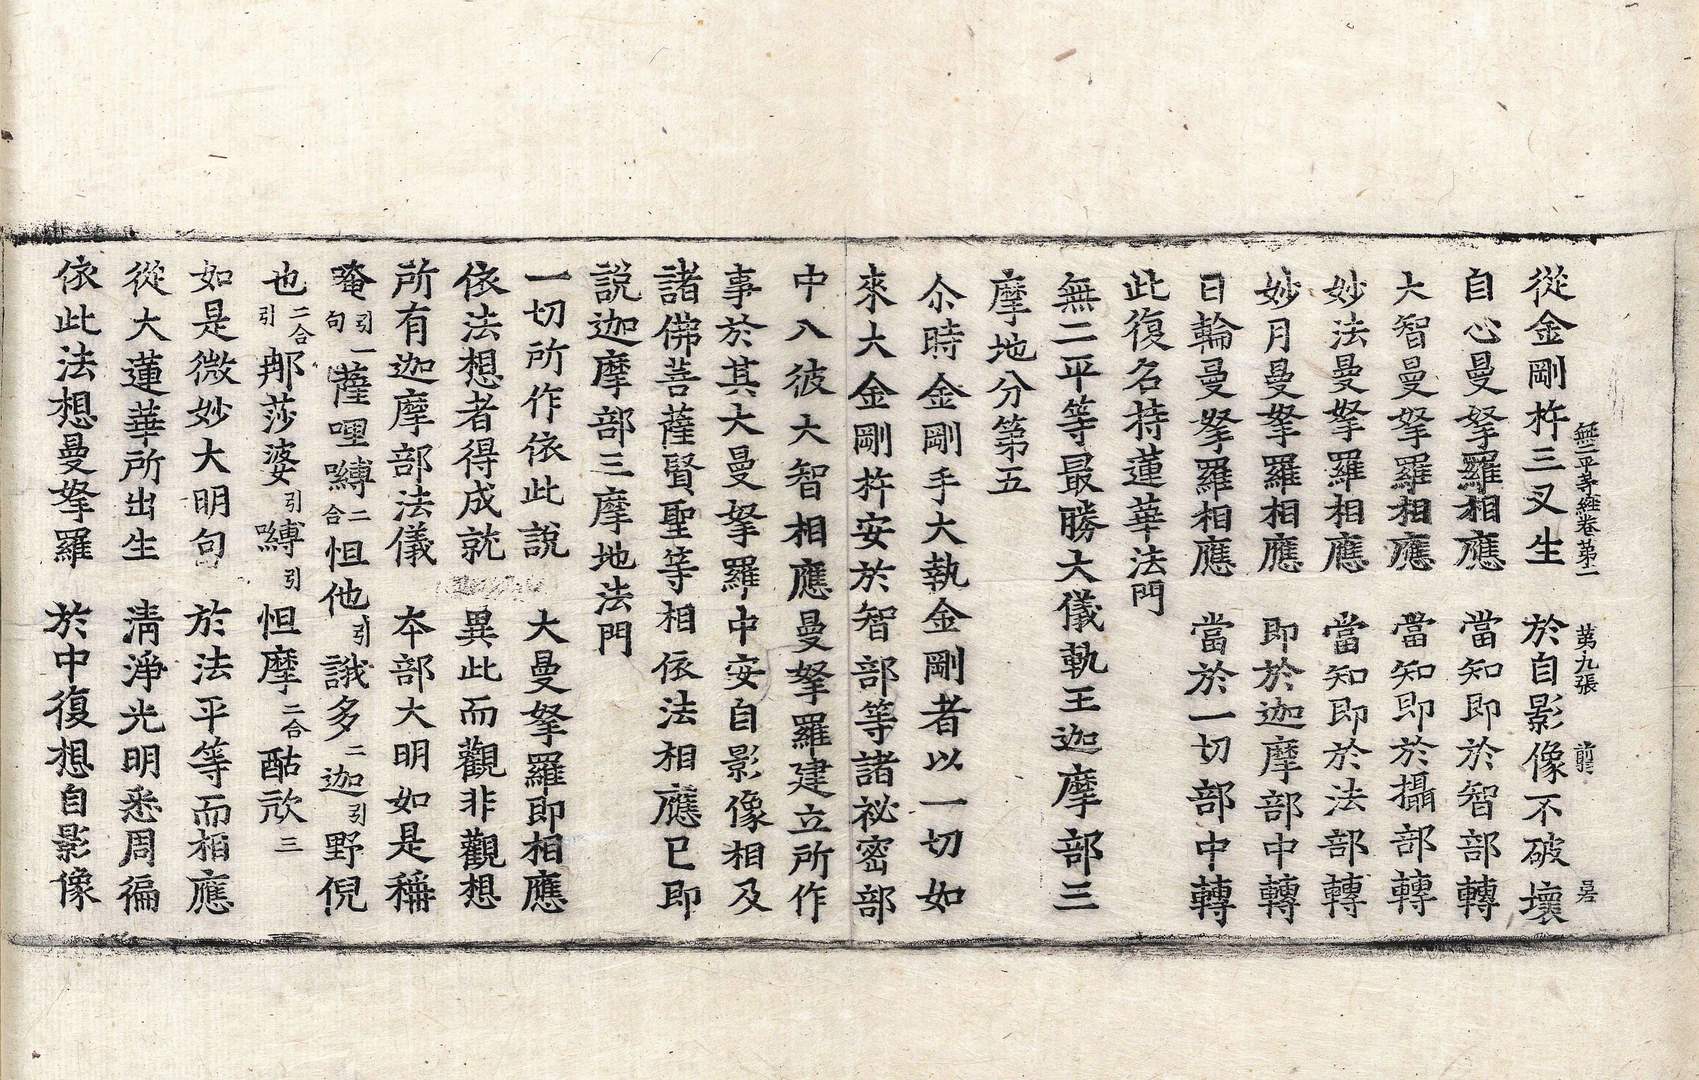 無二平等經卷第一　第九張　前　㫪
從金剛杵三叉生　於自影像不破壞
自心曼拏羅相應　當知即於智部轉
大智曼拏羅相應　當知即於攝部轉
妙法曼拏羅相應　當知即於法部轉
妙月曼拏羅相應　即於迦摩部中轉
日輪曼拏羅相應　當於一切部中轉
此復名持蓮華法門
無二平等最勝大儀軌王迦摩部三
摩地分第五
尒時金剛手大執金剛者以一切如
來大金剛杵安於智部等諸祕密部
中入彼大智相應曼拏羅建立所作
事於其大曼拏羅中安自影像相及
諸佛菩薩賢聖等相依法相應已即
說迦摩部三摩地法門
一切所作依此說　大曼拏羅即相應
依法想者得成就　異此而觀非觀想
所有迦摩部法儀　本部大明如是稱
唵引一句薩哩嚩二合怛他引誐多二迦引野倪
也二合引那莎婆引嚩引怛摩二合酤欱三
如是微妙大明句　於法平等而相應
從大蓮華所出生　清淨光明悉周徧
依此法想曼拏羅　於中復想自影像